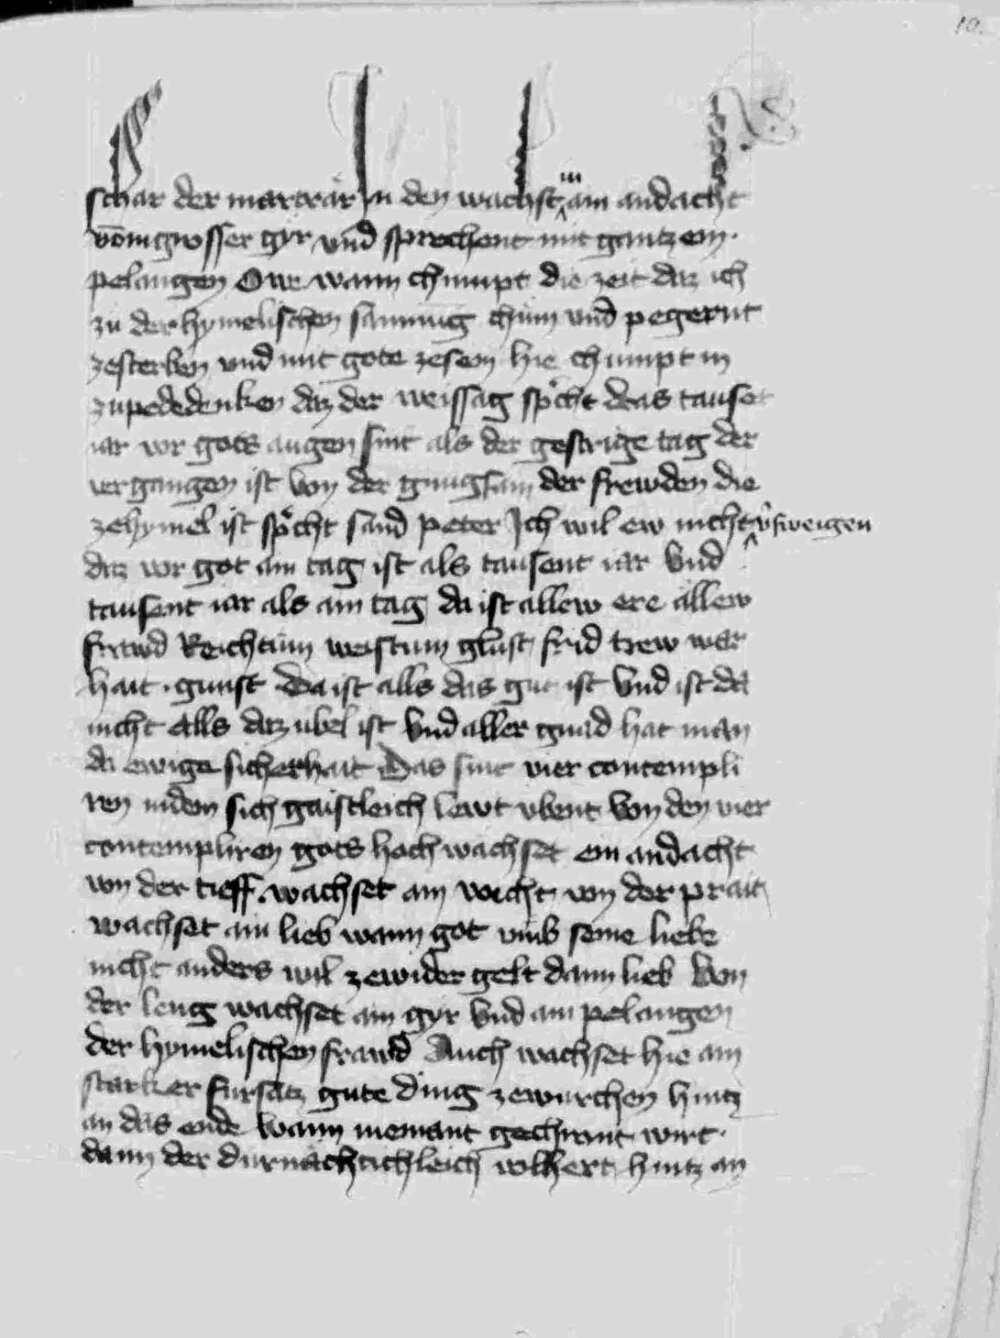 10
schar der marträr In den wachst in ain andacht
vō ingrosser gyr vnd sprechent mit gantzem
pelangen Owe wann chumpt die zeit daz ich
zu der hymelischen samnūg chüm vnd pegernt
zesterben vnd mit gote zesein hie chumpt in
zupededenken daz der weissag spͦcht das tauset
iar vor gots augen sint als der gestrige tag der
vergangen ist von der gnugsam der frewden die
zehymel ist spͦcht sand peter Ich wil ew nicht v̾sweigen
daz vor got ain tag ist als tausent iar Vnd
tausent iar als ain tag da ist allew ere allew
frawd Reichtum weistum glust frid trew war
hait . gunst Da ist alls das gut ist Vnd ist da
nicht alls daz vbel ist Vnd aller gnad hat man
da ewige sicherhait Das sint vier contempli
ren indem sich gaistleich lewt vbent Von den vier
contempliren gots hoch wachset ein andacht
von der tieff wachset ain vorcht von der prait
wachset ain lieb wann got vmb seine liebe
nicht anders wil zewider gelt dann lieb Von
der leng wachset ain gyr Vnd ain pelangen
der hymelischen frawd Auch wachset hie ain
starker fursatz gute ding zewurchen hintz
an das ende Wann niemant gechrönt wirt .
dann der durnächtichleich volhert hintz an